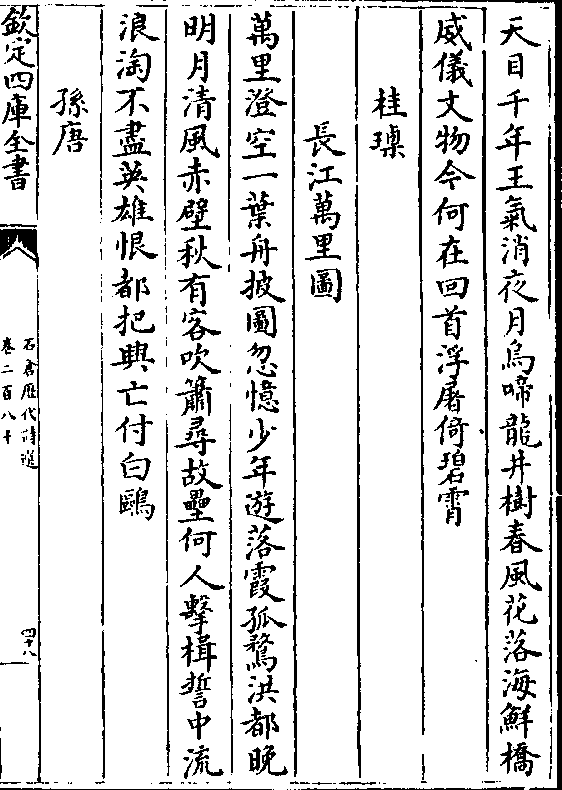 天目千年王氣消夜月烏啼龍井樹春風花落海鮮橋
威儀文物今何在回首浮屠倚碧霄
桂瓅
長江萬里圖
萬里澄空一葉舟披圖忽憶少年遊落霞孤鶩洪都晚
明月清風赤壁秋有客吹簫尋故壘何人擊楫誓中流
浪淘不盡英雄恨都把興亡付白鷗
孫唐
欽定四庫全書
石倉歷代詩選
卷二百八十
四十八